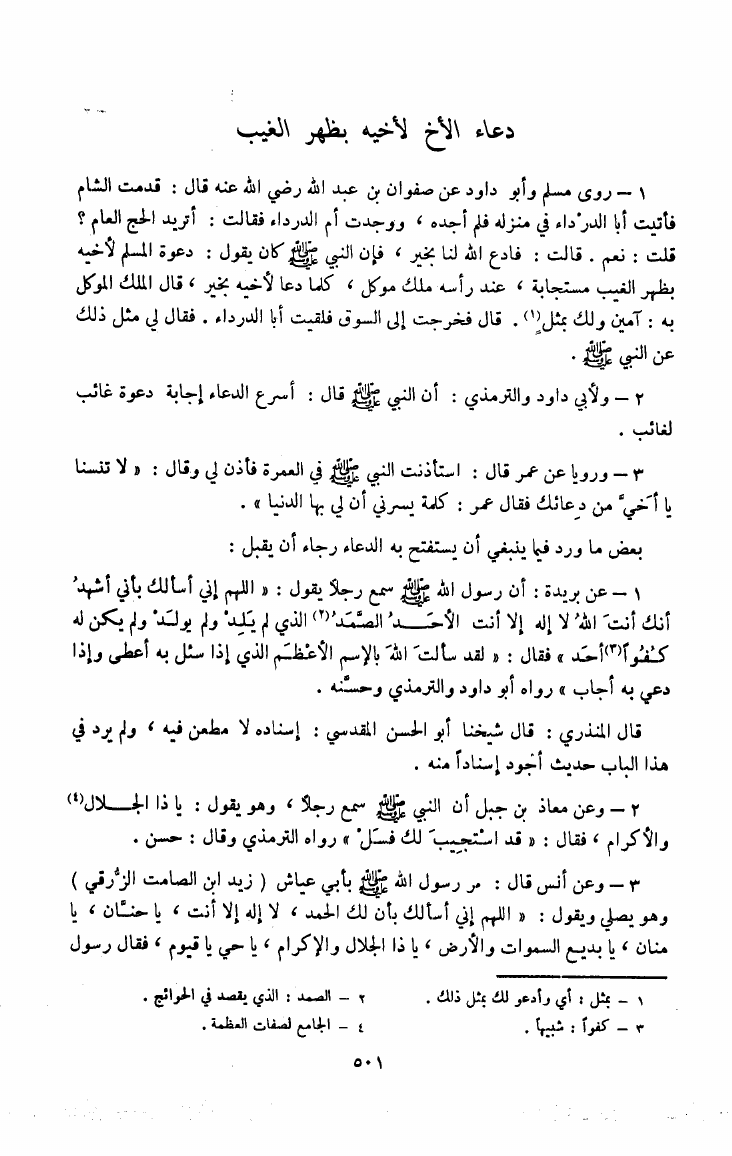 دعاء الأخ لأخيه بظهر الغيب
١ – روى مسلم وأبو داود عن صفوان بن عبد الله رضي الله عنه قال : قدمت الشام
فأتيت أبا الدرْداء في منزله فلم أجده ، ووجدت أم الدرداء فقالت : أتريد الحج العام ؟
قلت : نعم . قالت : فادع الله لنا بخير ، فإن النبي ﷺ كان يقول : دعوة المسلم لأخيه
بظهر الغيب مستجابة ، عند رأسه ملك موكل ، كلما دعا لأخيه بخير ، قال الملك الموكل
به : آمين ولك بمثلٍ(١) . قال فخرجت إلى السوق فلقيت أبا الدرداء . فقال لي مثل ذلك
عن النبي ﷺ .
٢ – ولأبي داود والترمذي : أن النبي ﷺ قال : أسرع الدعاء إجابة دعوة غائب
لغائب .
٣ – ورويا عن عمر قال : استأذنت النبي ﷺ في العمرة فأذن لي وقال : « لا تنسنا
يا أخيَّ من دعائك فقال عمر : كلمة يسرني أن لي بها الدنيا » .
بعض ما ورد فيما ينبغي أن يستفتح به الدعاء رجاء أن يقبل :
١ – عن بريدة : أن رسول الله ﷺ سمع رجلاً يقول : « اللهم إني أسألك بأني أشهدُ
أنك أنتَ اللهُ لا إله إلا أنت الأحـــدُ الصَّمَدُ(٢) الذي لم يَلِدْ ولم يولَدْ ولم يكن له
كُفُواً(٣) أحَد » فقال : « لقد سألتَ اللهَ بالإسم الأعْظَم الذي إذا سئل به أعطى وإذا
دعي به أجاب » رواه أبو داود والترمذي وحسَّنه .
قال المنذري : قال شيخنا أبو الحسن المقدسي : إسناده لا مطعن فيه ، ولم يرد في
هذا الباب حديث أجود إسناداً منه .
٢ – وعن معاذ بن جبل أن النبي ﷺ سمع رجلاً ، وهو يقول : يا ذا الجـــلال(٤)
والأكرام ، فقال : « قد اسْتجِيبَ لك فسَلْ » رواه الترمذي وقال : حسن .
٣ – وعن أنس قال : مر رسول الله ﷺ بأبي عياش ( زيد ابن الصامت الزُّرقي )
وهو يصلي ويقول : « اللهم إني أسألك بأن لك الحمد ، لا إله إلا أنت ، يا حنَّان ، يا
منان ، يا بديع السموات والأرض ، يا ذا الجلال والإكرام ، يا حي يا قيوم ، فقال رسول
١ – بمثل : أي وأدعو لك بمثل ذلك . ٢ – الصمد : الذي يقصد في الحوائج .
٣ – كفواً : شبيهاً . ٤ – الجامع لصفات العظمة .
٥٠١